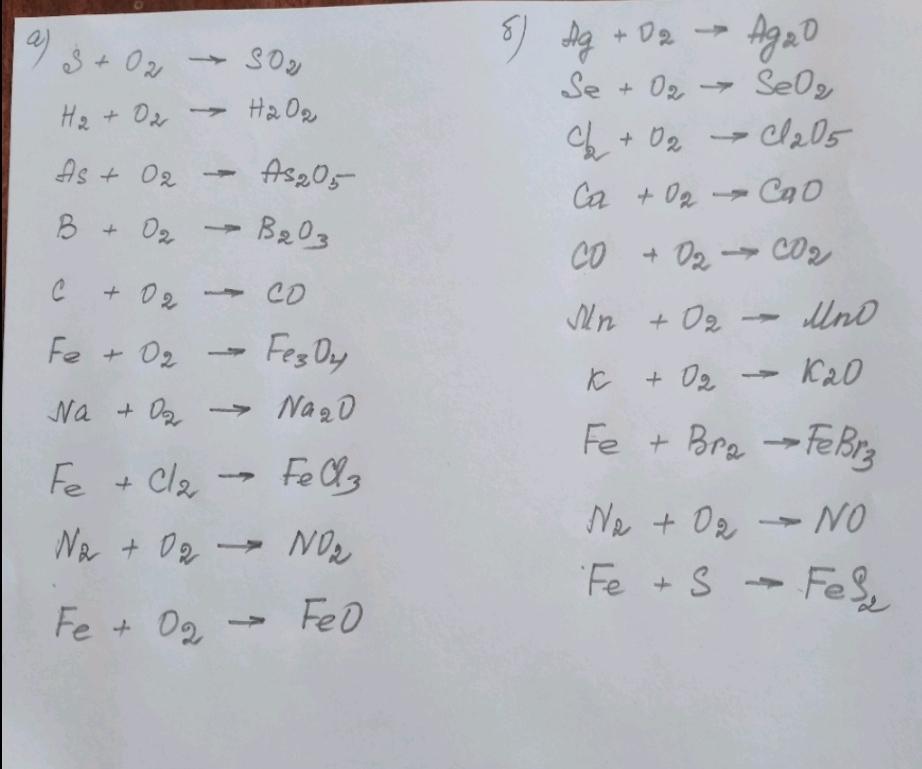 а)
S + O2 → SO2
H2 + O2 → H2O2
As + O2 → As2O5
B + O2 → B2O3
C + O2 → CO
Fe + O2 → Fe3O4
Na + O2 → Na2O
Fe + Cl2 → FeCl3
N2 + O2 → NO2
Fe + O2 → FeO
б)
Ag + O2 → Ag2O
Se + O2 → SeO2
Cl2 + O2 → Cl2O5
Ca + O2 → CaO
CO + O2 → CO2
Mn + O2 → MnO
K + O2 → K2O
Fe + Br2 → FeBr3
N2 + O2 → NO
Fe + S → FeS2